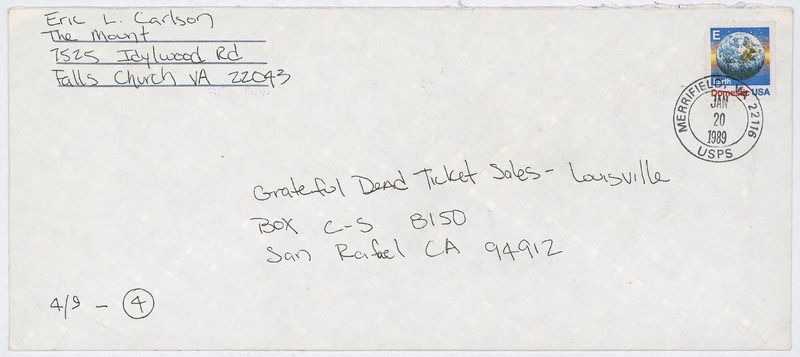 Eric L. Carlson
The Mount
7525 Idylwood Rd
Falls Church VA 22043
E
Earth
Domestic USA
MERRIFIELD, VA 22116
JAN
20
1989
USPS
Grateful Dead Ticket Sales - Louisville
Box C-S 8150
San Rafael CA 94912
4/9 - 4